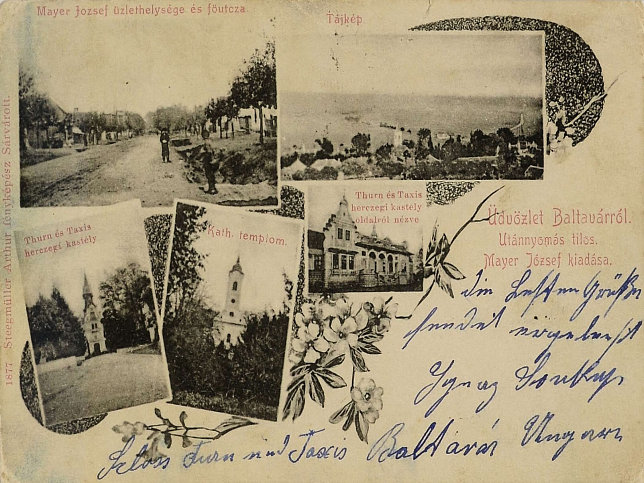 Mayer József üzlethelysége és főutcza.
Tájkép.
1877 Steegmüller Arthur fényképész Sárvárott.
Thurn és Taxis
herczegi kastély
Kath. templom.
Thurn és Taxis
herczegi kastély
oldalról nézve
Üdvözlet Baltavárról.
Utánnyomás tilos.
Mayer József kiadása.
die besten Grüße
sendet ergebenst
Ignaz
Schloss Turn und Taxis Baltavár Ungarn